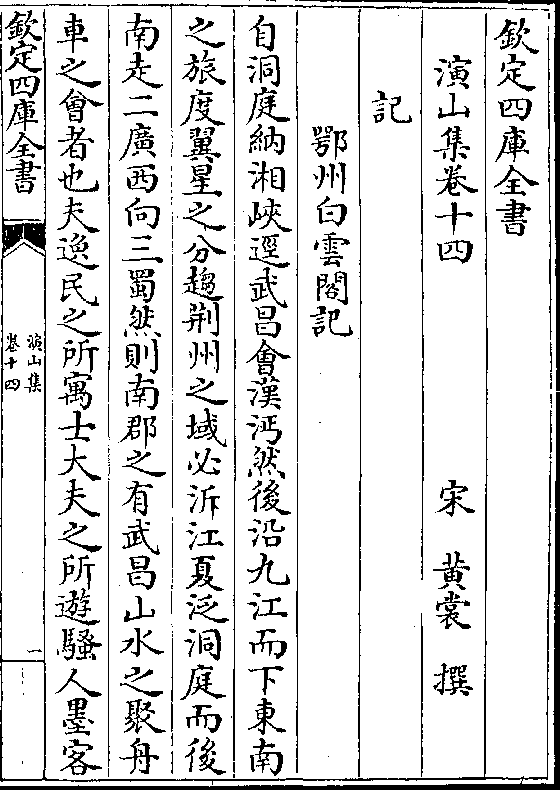 欽定四庫全書
演山集卷十四
宋 黃裳 撰
記
鄂州白雲閣記
自洞庭納湘峽逕武昌會漢沔然後沿九江而下東南
之旅度翼星之分趨荆州之域必泝江夏泛洞庭而後
南走二廣西向三蜀然則南郡之有武昌山水之聚舟
車之會者也夫逸民之所寓士大夫之所遊騷人墨客
欽定四庫全書
演山集
卷十四
一